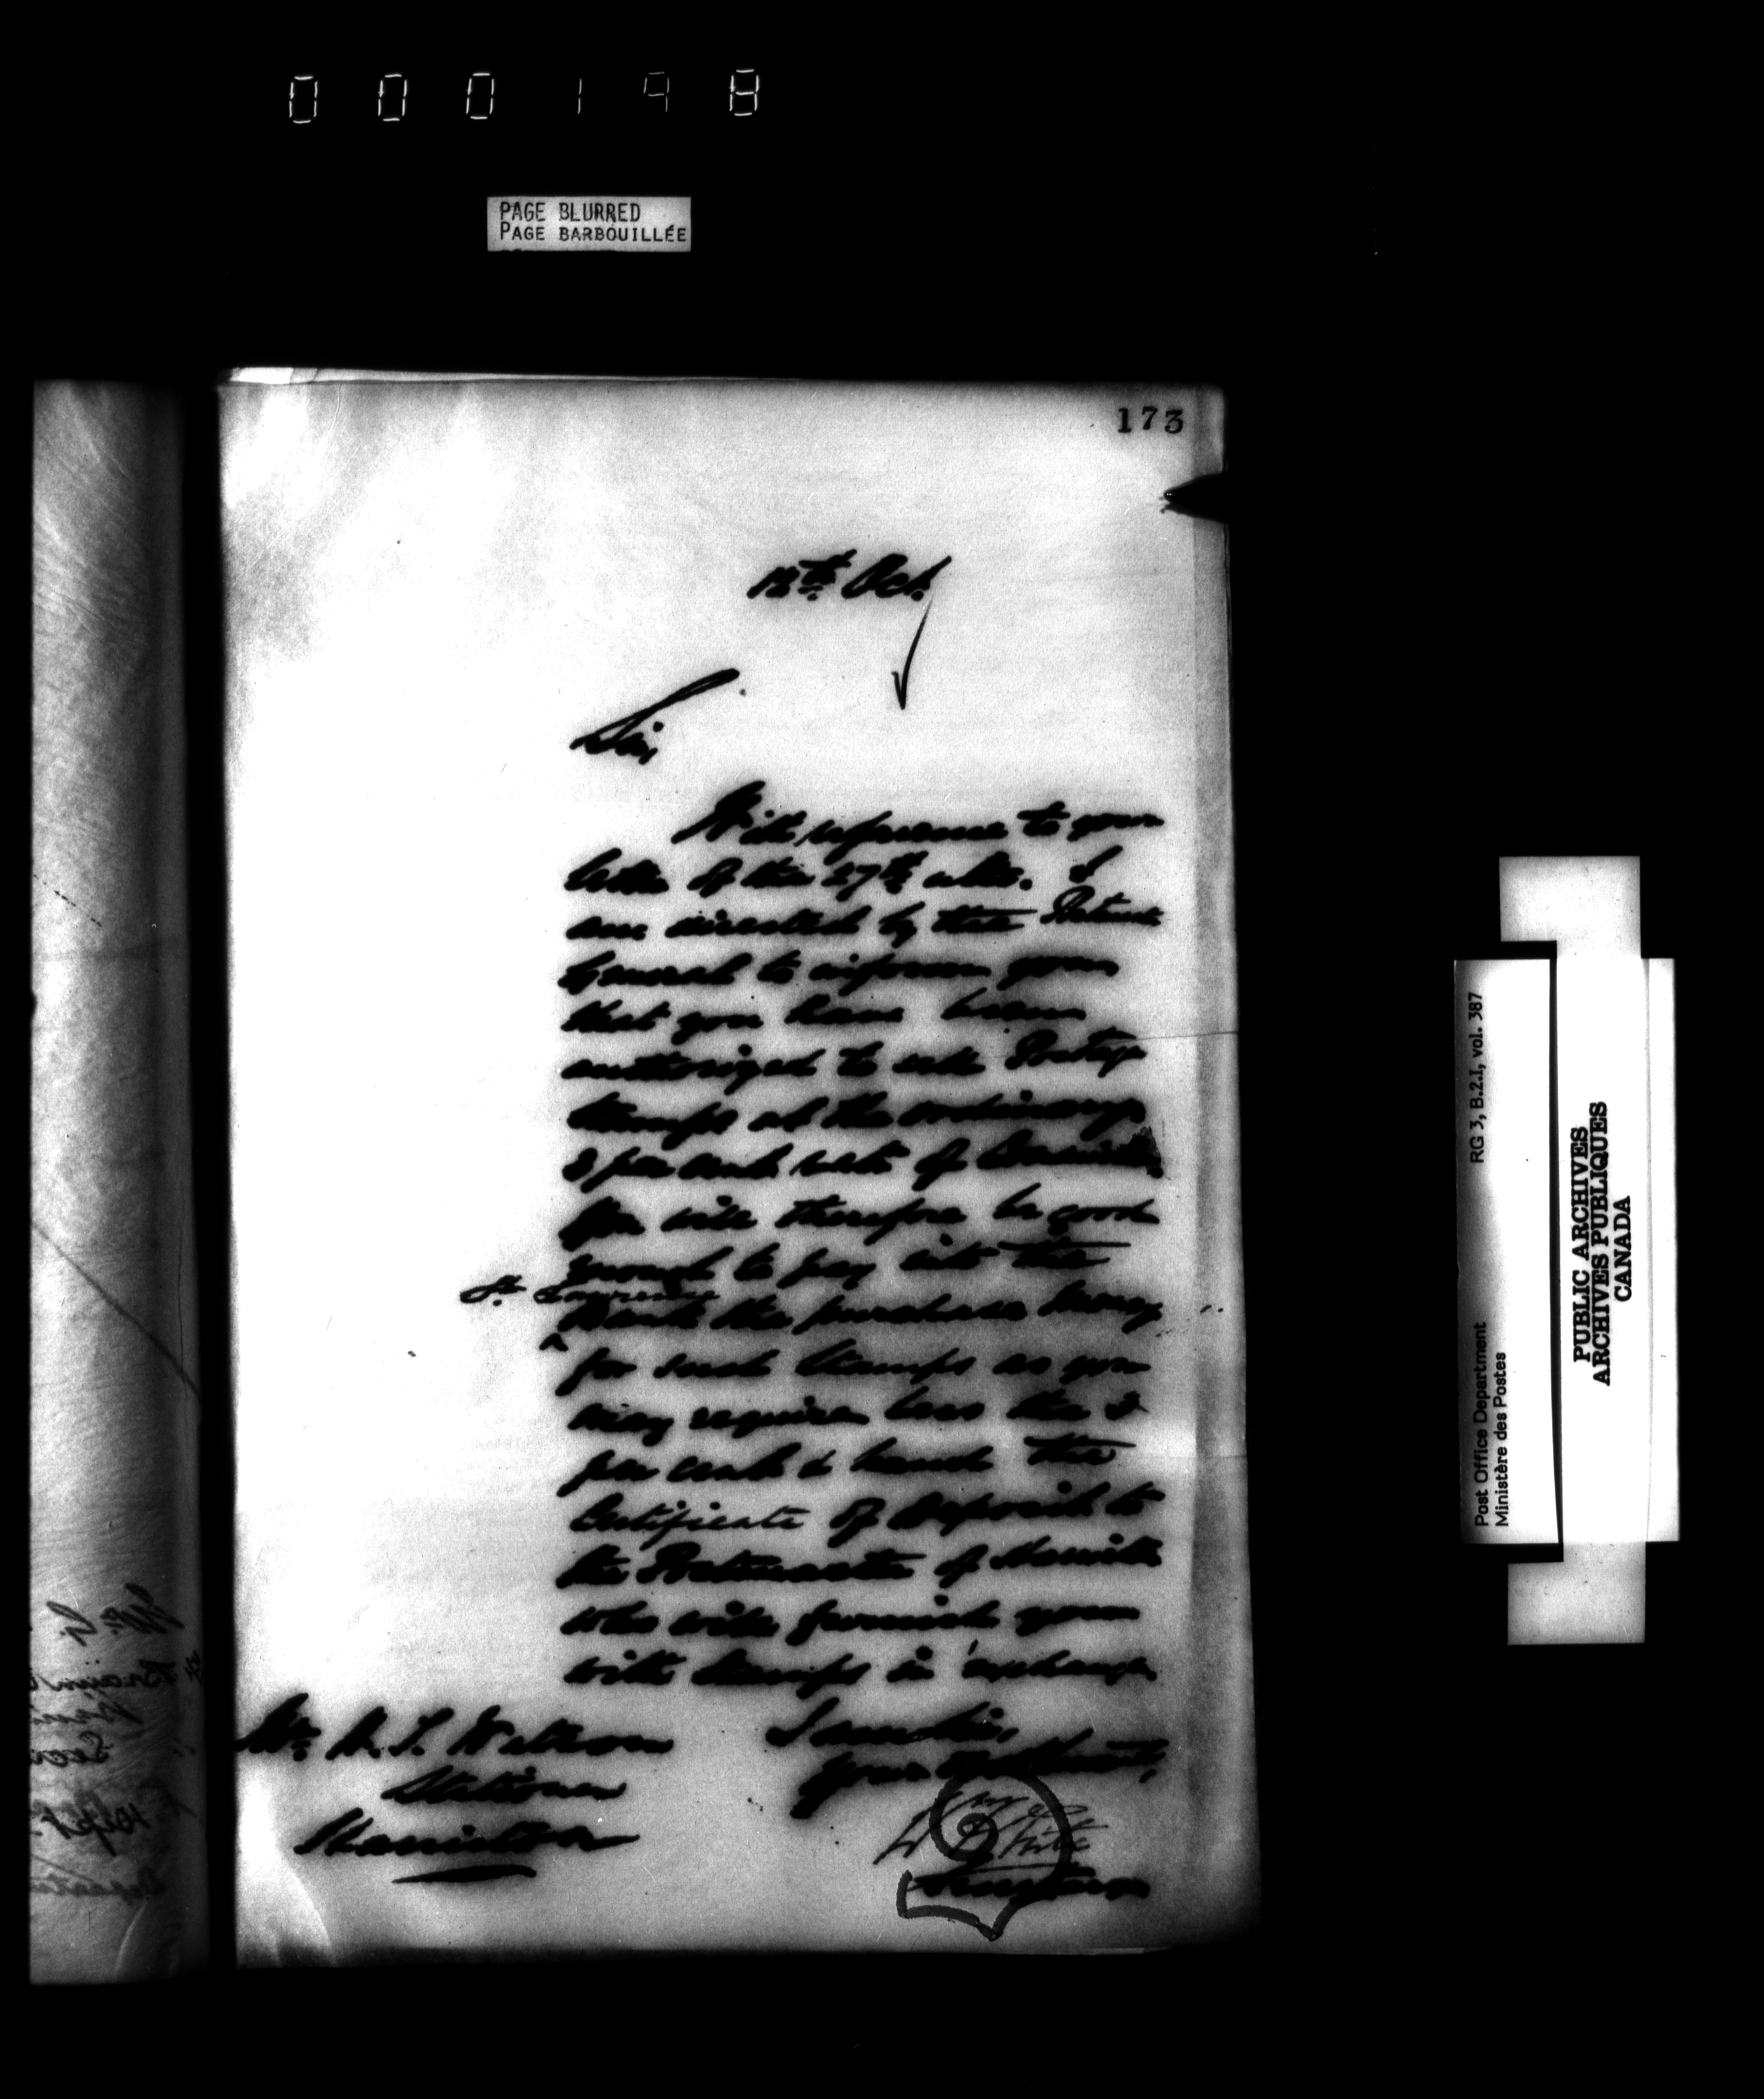 000198
PAGE BLURRED
PAGE BARBOUILLÉE
173
12th Oct.
Sir,
With reference to your
letter of the 27th ulto. I
am directed by the Postmr.
General to inform you
that you have been
authorized to sell Postage
Stamps at the ordinary
per cent rate of
You will therefore be good
enough to pay into the
St. Lawrence
Bank the purchase money
for such Stamps as you
may require less the
per cent & hand the
Certificate of Deposit to
the Postmaster of Hamilton
who will furnish you
with Stamps in exchange.
I am Sir,
Your Obt. Servant,
W. White
Secretary
Mr. R. T. Watson
Stationer
Hamilton
RG 3, B.2.I, vol. 387
Post Office Department
Ministère des Postes
PUBLIC ARCHIVES
ARCHIVES PUBLIQUES
CANADA